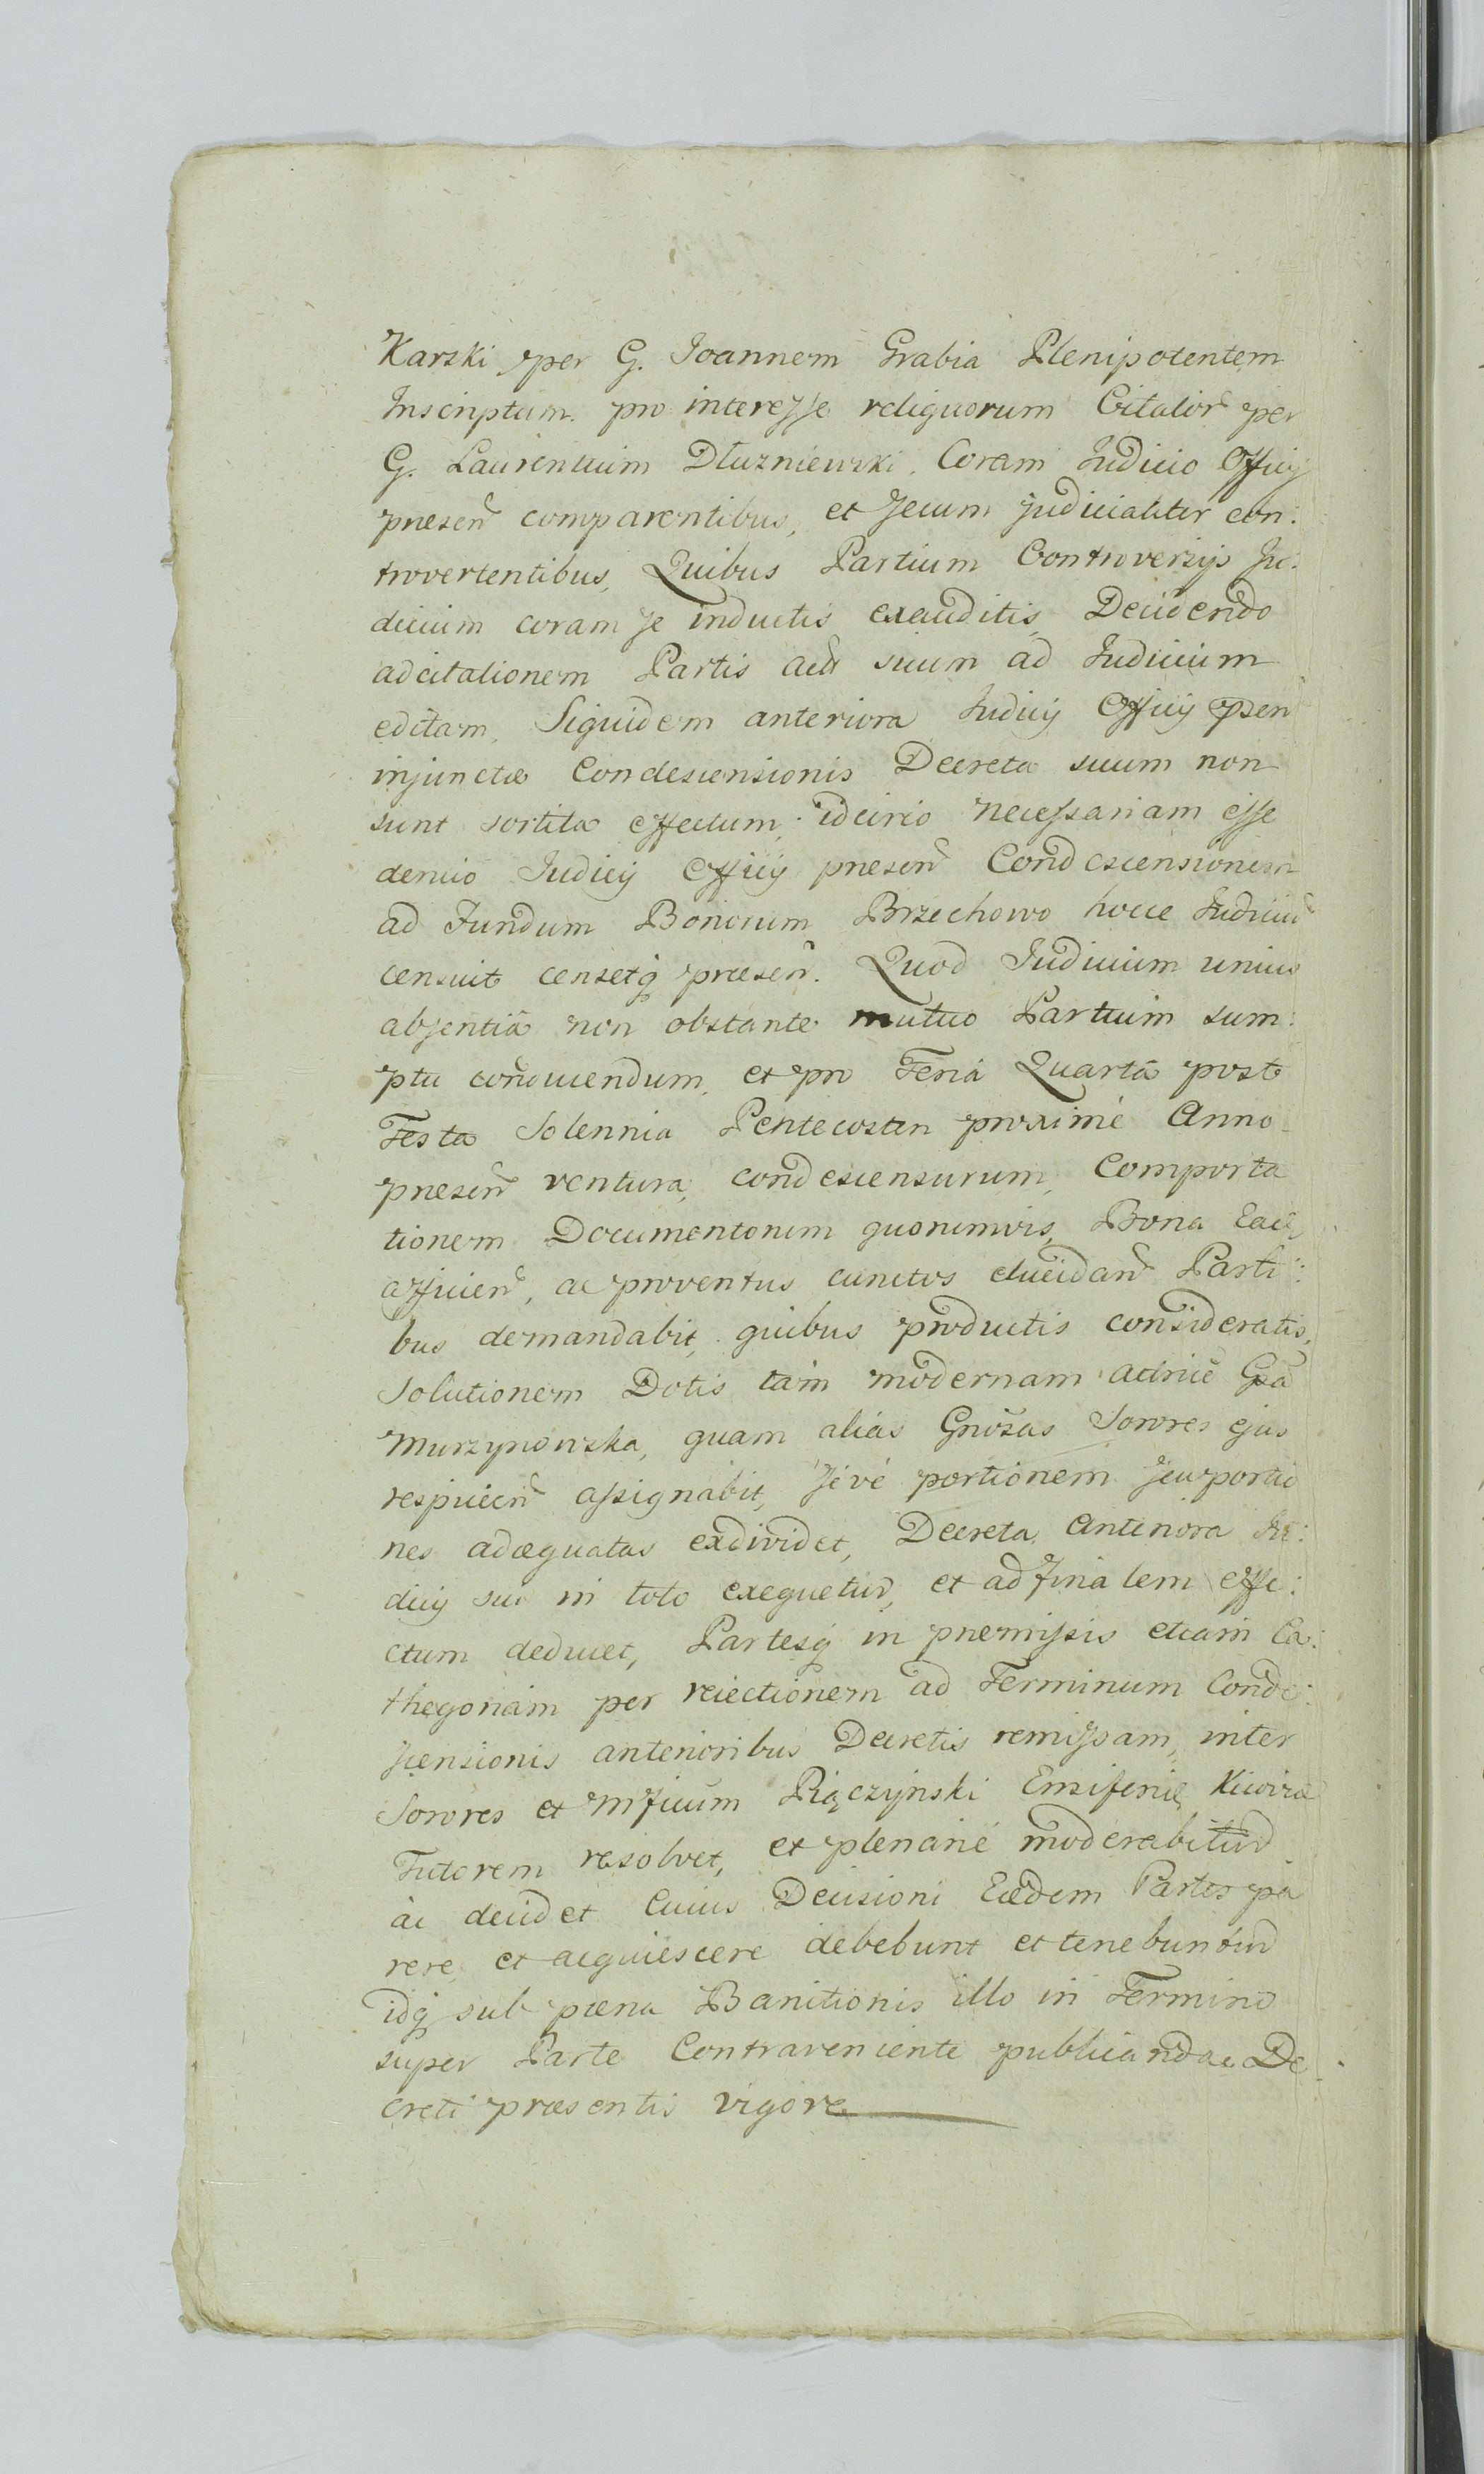 Karski per G. Joannem Grabia Plenipotentem
Inscriptum pro interesse reliquorum Citator̃ per
G. Laurentium Dłuzniewski, Coram Judicio Officij
præsen̄ comparentibus, et secum judicialiter con:
trovertentibus, Quibus Partium Controversijs Ju:
dicium coram se inductis exauditis, Decidendo
adcitationem Partis ad suum ad Judicium
editam, Siquidem anteriora Judicij Officij præsen̄
injunctæ Condescensionis Decreta suum non
sunt sortita effectum; idcirco necessariam esse
denuo Judicij Officij præsen̄ Condescensionem
ad Fundum Bonorum Brzechowo hocce Judiciū
censuit censetq̨ præsen̄. Quod Judicium unius
absentiâ non obstante mutuo Partium sum:
ptu conducendum, et pro Feria Quarta post
Festa Solennia Pentecosten proximé Anno
præsen̄ ventura, condescensurum, Comporta
tionem Documentorum quorumvis, Bona Ead
afficien̄, ac proventus cunctos elucidan̄ Parti:
bus demandabit, quibus productis consideratis,
Solutionem Dotis tam modernam Actricē Gsã
Murzynowska, quam alias Gnosas Sorores ejus
respicien̄ assignabit, sivé portionem seu portio
nes adæquatas exdividet, Decreta Anteriora Ju:
dicij sui in toto exequetur, et ad finalem effe:
ctum deducet, Partesq̨ in præmissis etiam Ca:
thegoriam per reiectionem ad Terminum Conde:
scensionis anterioribus Decretis remissam, inter
Sorores et Mficum Pięczynski Ensiferū
Tutorem resolvet, et plenarié moderabitur
ac decidet Cuius Decisioni Eædem Partes pa
rere, et acquiescere debebunt et tenebuntur
idq̨ sub pœna Banitionis illo in Termino
super Parte Contraveniente publicandæ De
creti præsentis vigore